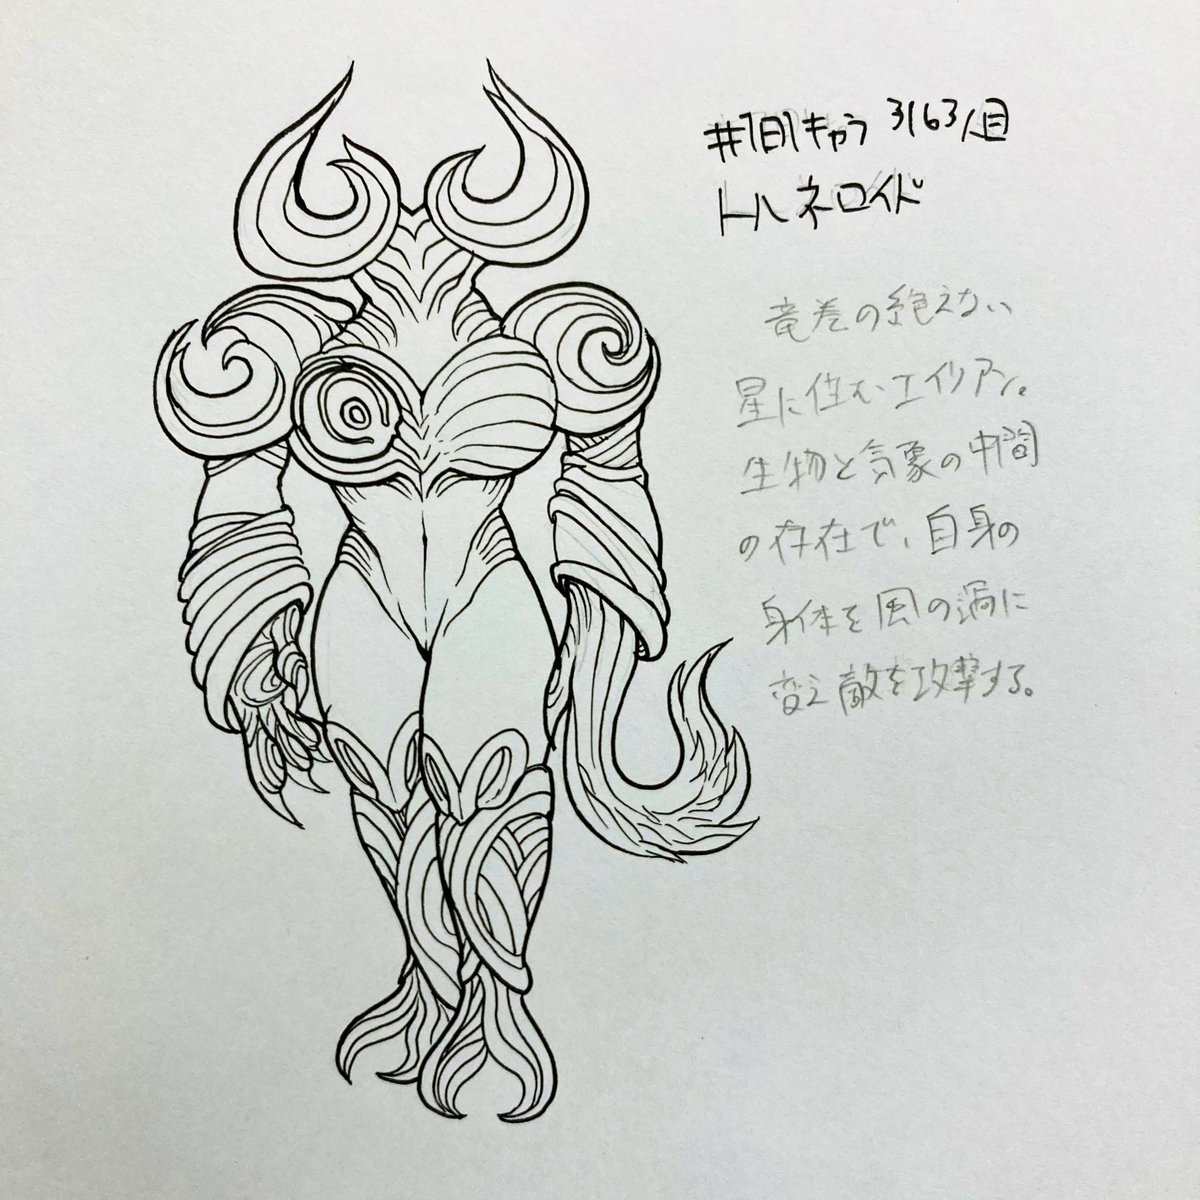 #1日1キャラ 3163人目
トルネロイド
竜巻の絶えない
星に住むエイリアン。
生物と気象の中間
の存在で、自身の
身体を風の渦に
変え敵を攻撃する。